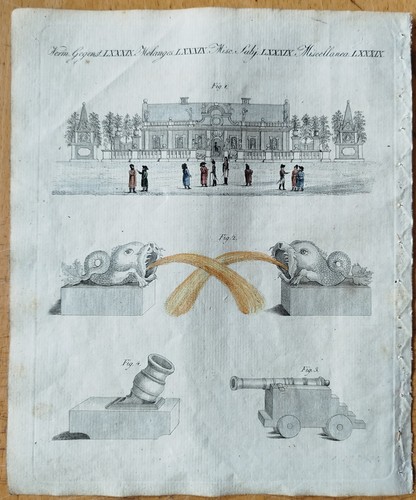 Verm. Gegenst. LXXXIX. Melanges LXXXIX. Misc. Subj. LXXXIX. Miscellanea LXXXIX.
Fig. 1.
Fig. 2.
Fig. 4.
Fig. 3.